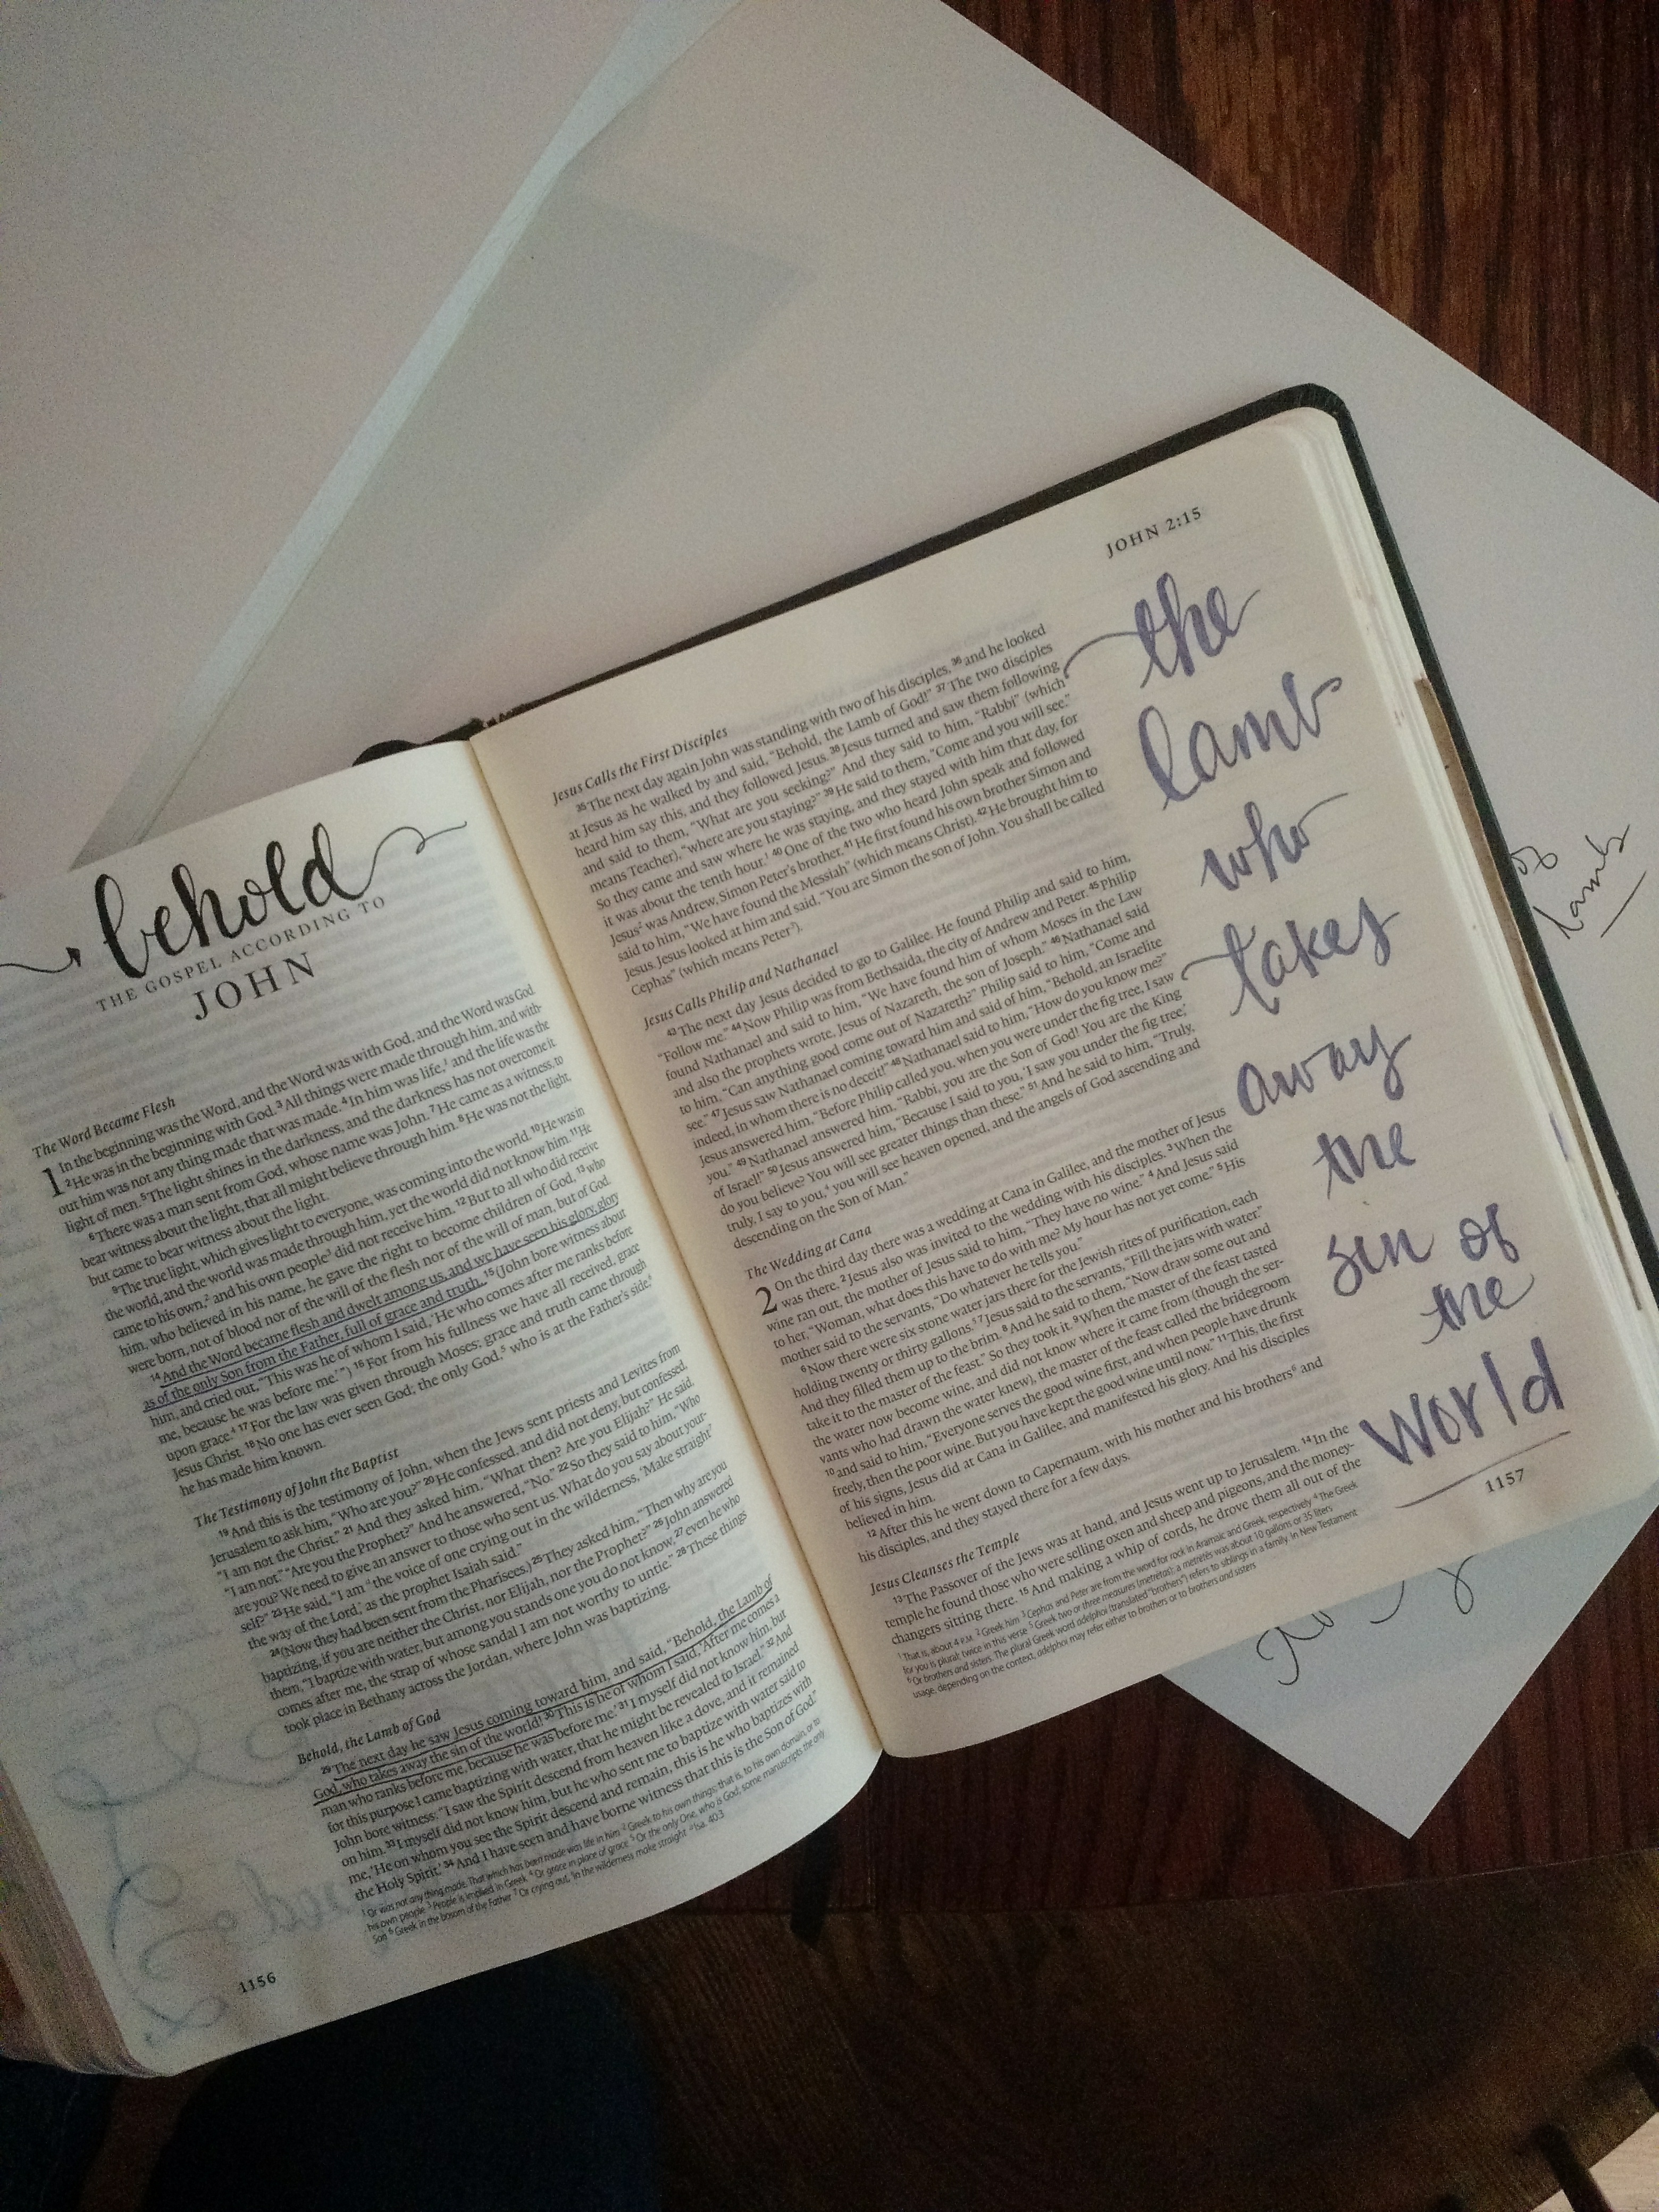 behold
THE GOSPEL ACCORDING TO
JOHN
The Word Became Flesh
1 In the beginning was the Word, and the Word was with God, and the Word was God.
² He was in the beginning with God. ³ All things were made through him, and with-
out him was not any thing made that was made. ⁴ In him was life,¹ and the life was the
light of men. ⁵ The light shines in the darkness, and the darkness has not overcome it.
⁶ There was a man sent from God, whose name was John. ⁷ He came as a witness, to
bear witness about the light, that all might believe through him. ⁸ He was not the light,
but came to bear witness about the light.
⁹ The true light, which gives light to everyone, was coming into the world. ¹⁰ He was in
the world, and the world was made through him, yet the world did not know him. ¹¹ He
came to his own,² and his own people³ did not receive him. ¹² But to all who did receive
him, who believed in his name, he gave the right to become children of God, ¹³ who
were born, not of blood nor of the will of the flesh nor of the will of man, but of God.
¹⁴ And the Word became flesh and dwelt among us, and we have seen his glory, glory
as of the only Son from the Father, full of grace and truth. ¹⁵ (John bore witness about
him, and cried out, "This was he of whom I said, 'He who comes after me ranks before
me, because he was before me.'") ¹⁶ For from his fullness we have all received, grace
upon grace.⁴ ¹⁷ For the law was given through Moses; grace and truth came through
Jesus Christ. ¹⁸ No one has ever seen God; the only God,⁵ who is at the Father's side,⁶
he has made him known.
The Testimony of John the Baptist
¹⁹ And this is the testimony of John, when the Jews sent priests and Levites from
Jerusalem to ask him, "Who are you?" ²⁰ He confessed, and did not deny, but confessed,
"I am not the Christ." ²¹ And they asked him, "What then? Are you Elijah?" He said,
"I am not." "Are you the Prophet?" And he answered, "No." ²² So they said to him, "Who
are you? We need to give an answer to those who sent us. What do you say about your-
self?" ²³ He said, "I am ᵃthe voice of one crying out in the wilderness, 'Make straight⁷
the way of the Lord,' as the prophet Isaiah said."
²⁴ (Now they had been sent from the Pharisees.) ²⁵ They asked him, "Then why are you
baptizing, if you are neither the Christ, nor Elijah, nor the Prophet?" ²⁶ John answered
them, "I baptize with water, but among you stands one you do not know, ²⁷ even he who
comes after me, the strap of whose sandal I am not worthy to untie." ²⁸ These things
took place in Bethany across the Jordan, where John was baptizing.
Behold, the Lamb of God
²⁹ The next day he saw Jesus coming toward him, and said, "Behold, the Lamb of
God, who takes away the sin of the world! ³⁰ This is he of whom I said, 'After me comes a
man who ranks before me, because he was before me.' ³¹ I myself did not know him, but
for this purpose I came baptizing with water, that he might be revealed to Israel." ³² And
John bore witness: "I saw the Spirit descend from heaven like a dove, and it remained
on him. ³³ I myself did not know him, but he who sent me to baptize with water said to
me, 'He on whom you see the Spirit descend and remain, this is he who baptizes with
the Holy Spirit.' ³⁴ And I have seen and have borne witness that this is the Son of God."
¹ Or was not any thing made. That which has been made was life in him ² Greek to his own things; that is, to his own domain, or to
his own people ³ People is implied in Greek ⁴ Or grace in place of grace ⁵ Or the only One, who is God; some manuscripts the only
Son ⁶ Greek in the bosom of the Father ⁷ Or crying out, 'In the wilderness make straight ᵃ Isa. 40:3
1156
JOHN 2:15
Jesus Calls the First Disciples
³⁵ The next day again John was standing with two of his disciples, ³⁶ and he looked
at Jesus as he walked by and said, "Behold, the Lamb of God!" ³⁷ The two disciples
heard him say this, and they followed Jesus. ³⁸ Jesus turned and saw them following
and said to them, "What are you seeking?" And they said to him, "Rabbi" (which
means Teacher), "where are you staying?" ³⁹ He said to them, "Come and you will see."
So they came and saw where he was staying, and they stayed with him that day, for
it was about the tenth hour.¹ ⁴⁰ One of the two who heard John speak and followed
Jesus² was Andrew, Simon Peter's brother. ⁴¹ He first found his own brother Simon and
said to him, "We have found the Messiah" (which means Christ). ⁴² He brought him to
Jesus. Jesus looked at him and said, "You are Simon the son of John. You shall be called
Cephas" (which means Peter³).
Jesus Calls Philip and Nathanael
⁴³ The next day Jesus decided to go to Galilee. He found Philip and said to him,
"Follow me." ⁴⁴ Now Philip was from Bethsaida, the city of Andrew and Peter. ⁴⁵ Philip
found Nathanael and said to him, "We have found him of whom Moses in the Law
and also the prophets wrote, Jesus of Nazareth, the son of Joseph." ⁴⁶ Nathanael said
to him, "Can anything good come out of Nazareth?" Philip said to him, "Come and
see." ⁴⁷ Jesus saw Nathanael coming toward him and said of him, "Behold, an Israelite
indeed, in whom there is no deceit!" ⁴⁸ Nathanael said to him, "How do you know me?"
Jesus answered him, "Before Philip called you, when you were under the fig tree, I saw
you." ⁴⁹ Nathanael answered him, "Rabbi, you are the Son of God! You are the King
of Israel!" ⁵⁰ Jesus answered him, "Because I said to you, 'I saw you under the fig tree,'
do you believe? You will see greater things than these." ⁵¹ And he said to him, "Truly,
truly, I say to you,⁴ you will see heaven opened, and the angels of God ascending and
descending on the Son of Man."
The Wedding at Cana
2 On the third day there was a wedding at Cana in Galilee, and the mother of Jesus
was there. ² Jesus also was invited to the wedding with his disciples. ³ When the
wine ran out, the mother of Jesus said to him, "They have no wine." ⁴ And Jesus said
to her, "Woman, what does this have to do with me? My hour has not yet come." ⁵ His
mother said to the servants, "Do whatever he tells you."
⁶ Now there were six stone water jars there for the Jewish rites of purification, each
holding twenty or thirty gallons.⁵ ⁷ Jesus said to the servants, "Fill the jars with water."
And they filled them up to the brim. ⁸ And he said to them, "Now draw some out and
take it to the master of the feast." So they took it. ⁹ When the master of the feast tasted
the water now become wine, and did not know where it came from (though the ser-
vants who had drawn the water knew), the master of the feast called the bridegroom
¹⁰ and said to him, "Everyone serves the good wine first, and when people have drunk
freely, then the poor wine. But you have kept the good wine until now." ¹¹ This, the first
of his signs, Jesus did at Cana in Galilee, and manifested his glory. And his disciples
believed in him.
¹² After this he went down to Capernaum, with his mother and his brothers⁶ and
his disciples, and they stayed there for a few days.
Jesus Cleanses the Temple
¹³ The Passover of the Jews was at hand, and Jesus went up to Jerusalem. ¹⁴ In the
temple he found those who were selling oxen and sheep and pigeons, and the money-
changers sitting there. ¹⁵ And making a whip of cords, he drove them all out of the
¹ That is, about 4 P.M. ² Greek him ³ Cephas and Peter are from the word for rock in Aramaic and Greek, respectively ⁴ The Greek
for you is plural; twice in this verse ⁵ Greek two or three measures (metretas); a metretes was about 10 gallons or 35 liters
⁶ Or brothers and sisters. The plural Greek word adelphoi (translated "brothers") refers to siblings in a family. In New Testament
usage, depending on the context, adelphoi may refer either to brothers or to brothers and sisters
1157
the
lamb
who
takes
away
the
sin of
the
world
of
lamb